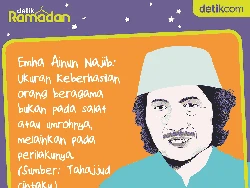 detik
Ramadan
detikcom
Emha Ainun Najib:
Ukuran keberhasilan
orang beragama
bukan pada salat
atau umrohnya,
melainkan pada
perilakunya.
(Sumber: Tahajjud
Cintaku)